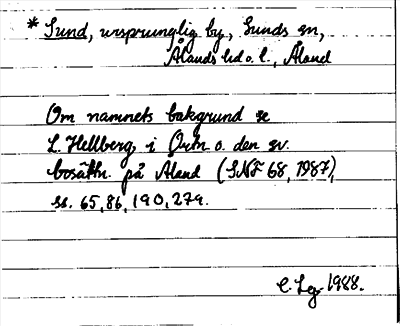 * Sund, ursprunglig by, Sunds sn,
Ålands hd o. l., Åland
Om namnets bakgrund se
L. Hellberg, i Ortn. o. den sv.
bosättn. på Åland (SNF 68, 1987),
ss. 65, 86, 190, 279.
C. Leg 1988.